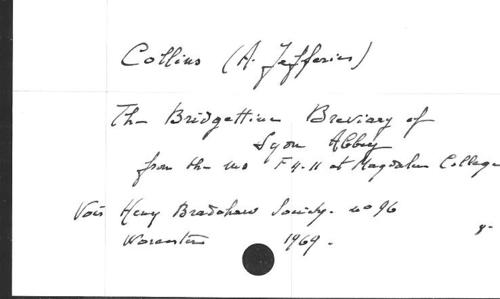 Collins (A. Jefferies)
The Bridgettine Breviary of
Syon Abbey
from the ms F.4.11 at Magdalene College
Voir Henry Bradshaw Society. no 96
Worcester 1969.